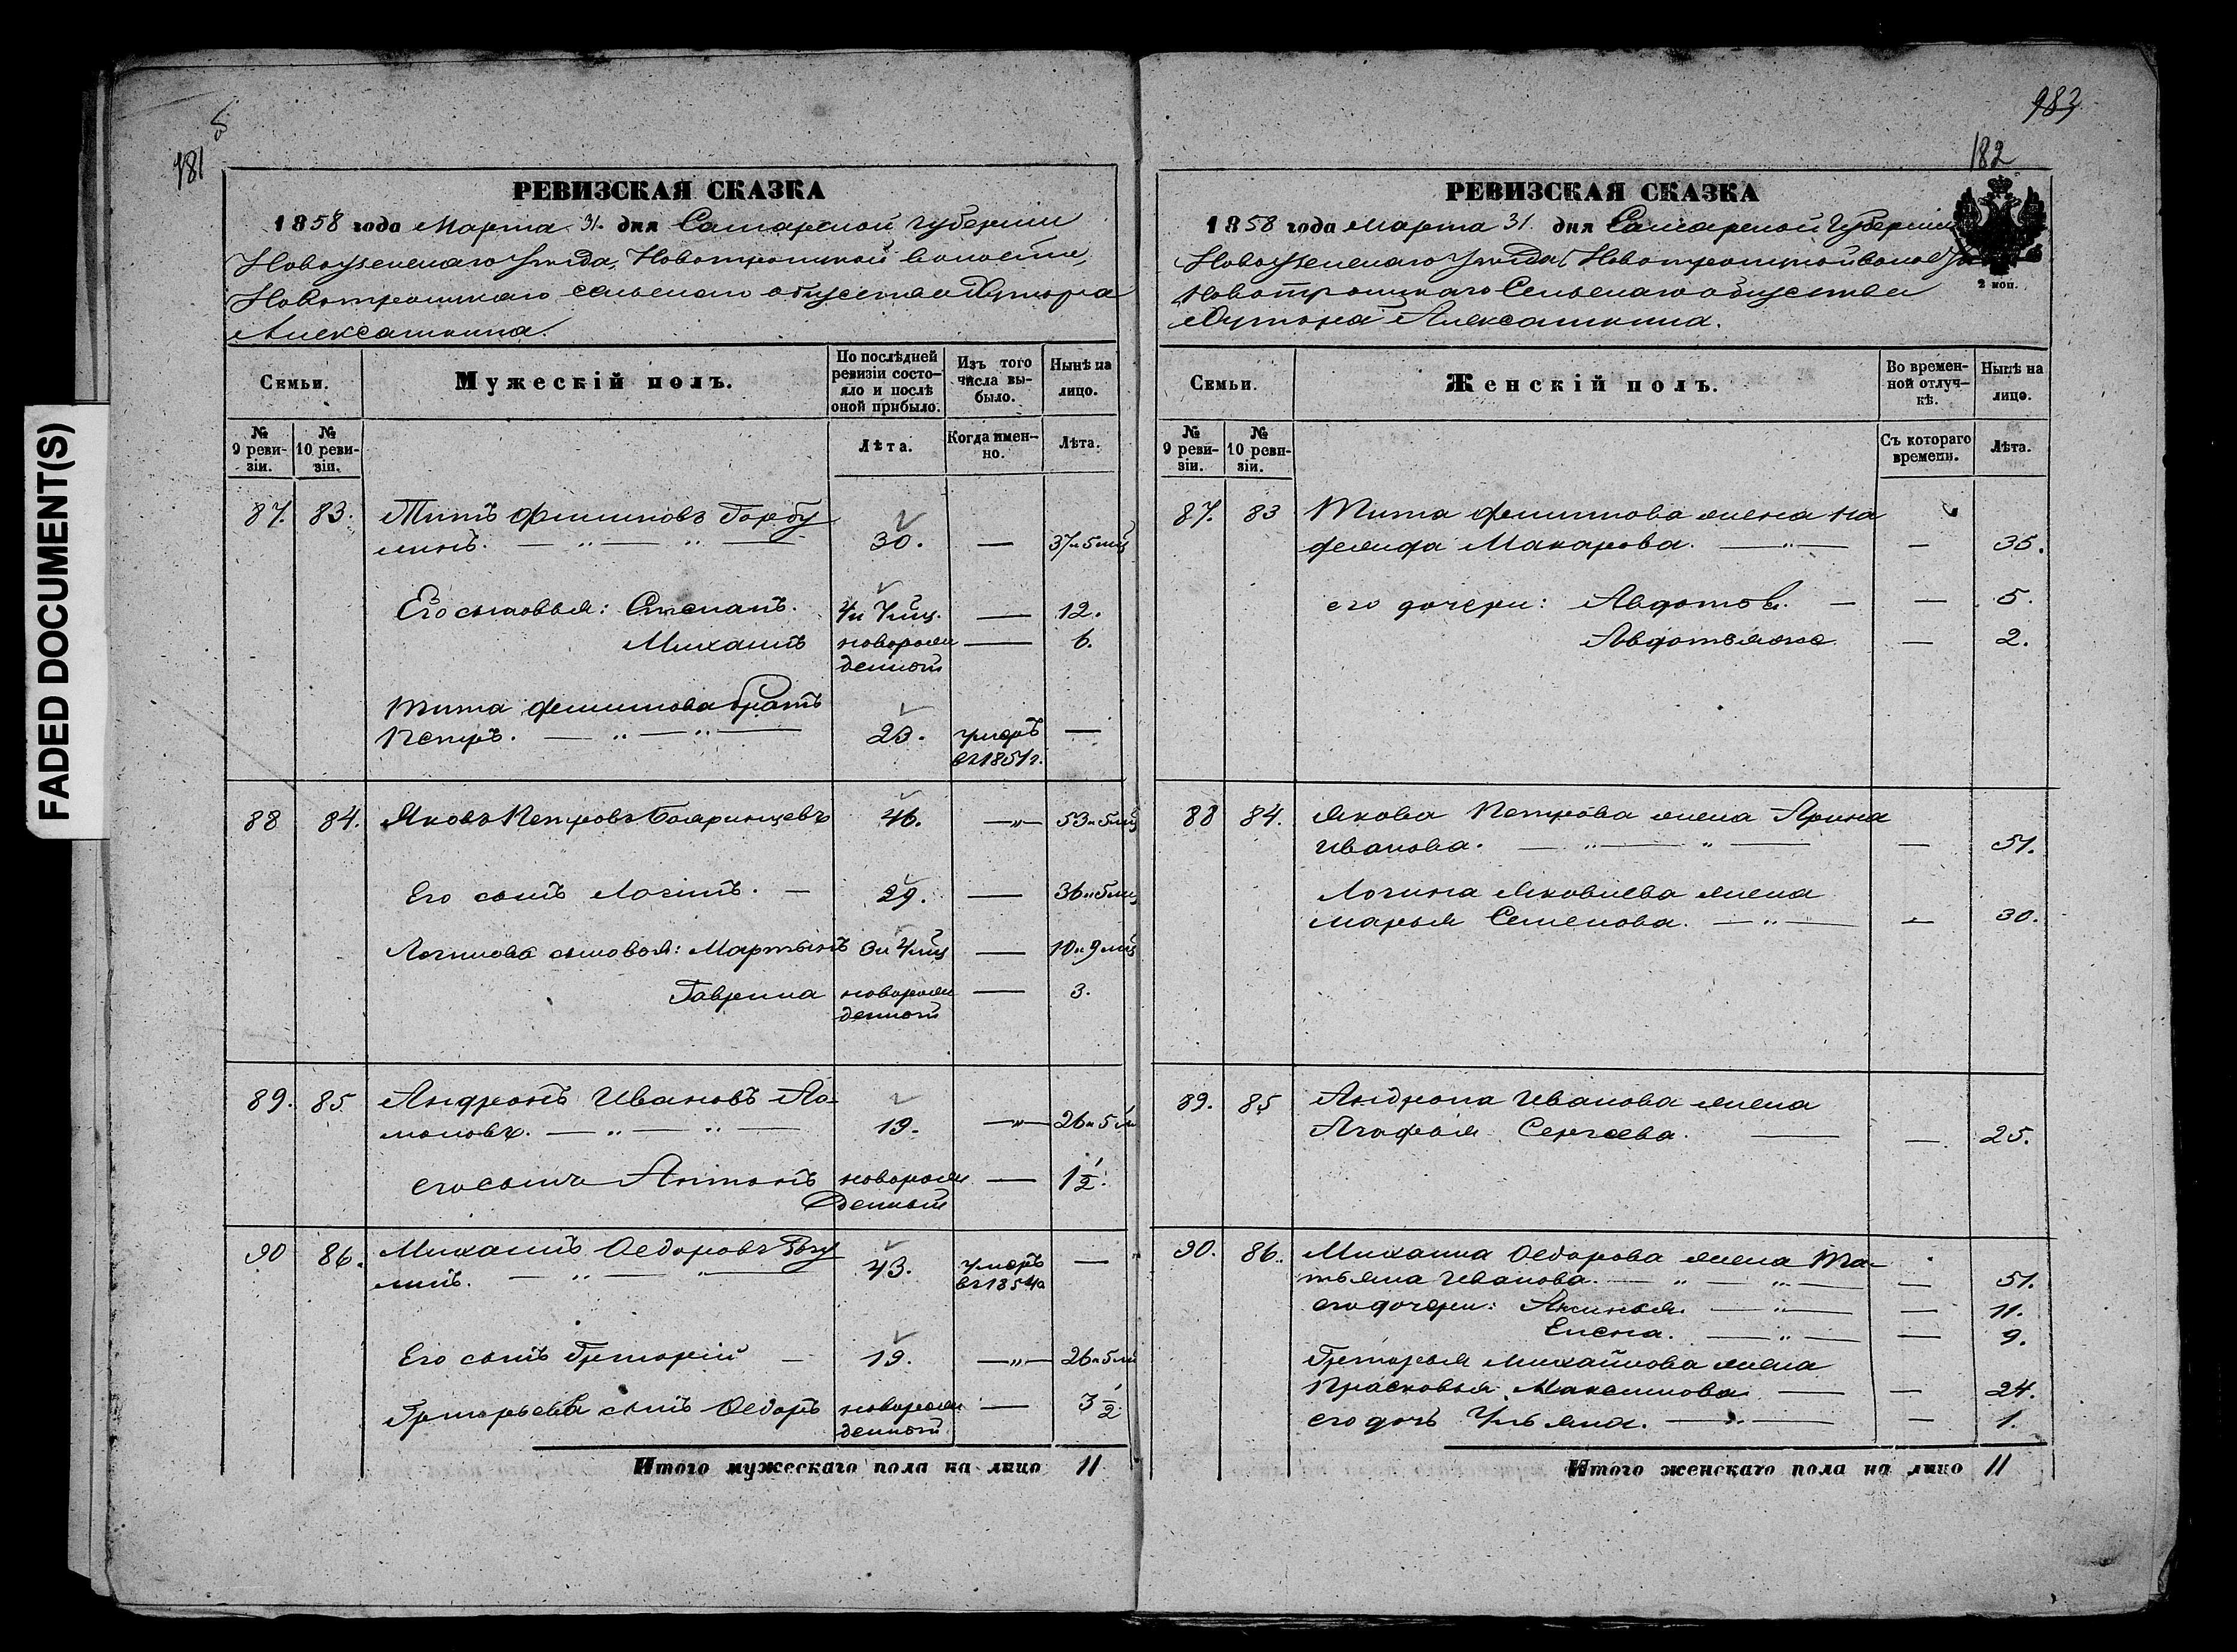 FADED DOCUMENT(S)
181
РЕВИЗСКАЯ СКАЗКА
1858 года Марта 31. дня Самарской Губернии
Новоузенскаго Уезда, Новотроицкой волости,
Новотроицкаго сельскаго общества Хутора
Алексашкина.
Семьи.
Мужескій полъ.
По послѣдней ревизіи состо-яло и послѣ оной прибыло.
Изъ того числа вы-было.
Нынѣ на лицо.
№ 9 реви-зіи.
№ 10 реви-зіи.
Лѣта.
Когда имен-но.
Лѣта.
87. 83. Титъ Филиповъ Горбу
линъ. 30. — 37 и 5 мц
Его сыновья: Степанъ. 4 и 7 мц. — 12.
Михаилъ новорож — 6.
денной
Тита Филипова братъ
Петръ. 23. умеръ —
въ 1851 г.
88 84. Яковъ Петровъ Бояринцевъ 46. —"— 53 и 5 мц
Его сынъ Логинъ. — 29. — 36 и 5 мц
Логинова сыновья: Мартынъ 3 и 4 мц — 10 и 9 мц
Гаврила новорож — 3.
денной
89. 85 Андронъ Ивановъ Ло-
моновъ. 19. —"— 26 и 5 м
его сынъ Антонъ новорож — 1 1/2.
денный
90 86. Михаилъ Ѳедоровъ
линъ. 43. умеръ —
въ 1854 г
Его сынъ Григорій — 19. —"— 26 и 5 мц
Григорьева сынъ Ѳедоръ новорож — 3 1/2
денной
Итого мужескаго пола на лицо 11
983
182
РЕВИЗСКАЯ СКАЗКА
1858 года Марта 31. дня Самарской Губерніи
Новоузенскаго Уезда, Новотроицкой волос
Новотроицкаго Сельскаго общества
Хутора Алексашкина.
2 коп.
Семьи.
Женскій полъ.
Во времен-ной отлуч-кѣ.
Нынѣ на лицо.
№ 9 реви-зіи.
№ 10 реви-зіи.
Съ котораго времени.
Лѣта.
87. 83 Тита Филипова жена На
дежда Макарова. — 35.
его дочери: Авдотья. — — 5.
Авдотья же — 2.
88 84. Якова Петрова жена Арина
Иванова. — 51.
Логина Яковлева жена
Марья Семенова. — 30.
89. 85 Андрона Иванова жена
Агафья Сергеева. — 25.
90. 86. Михаила Ѳедорова жена Та-
тьяна Иванова. — 51.
его дочери: Аксинья. — 11.
Елена. — 9.
Григорья Михайлова жена
Прасковья Максимова — 24.
его дочь Ульяна. — 1.
Итого женскаго пола на лицо 11